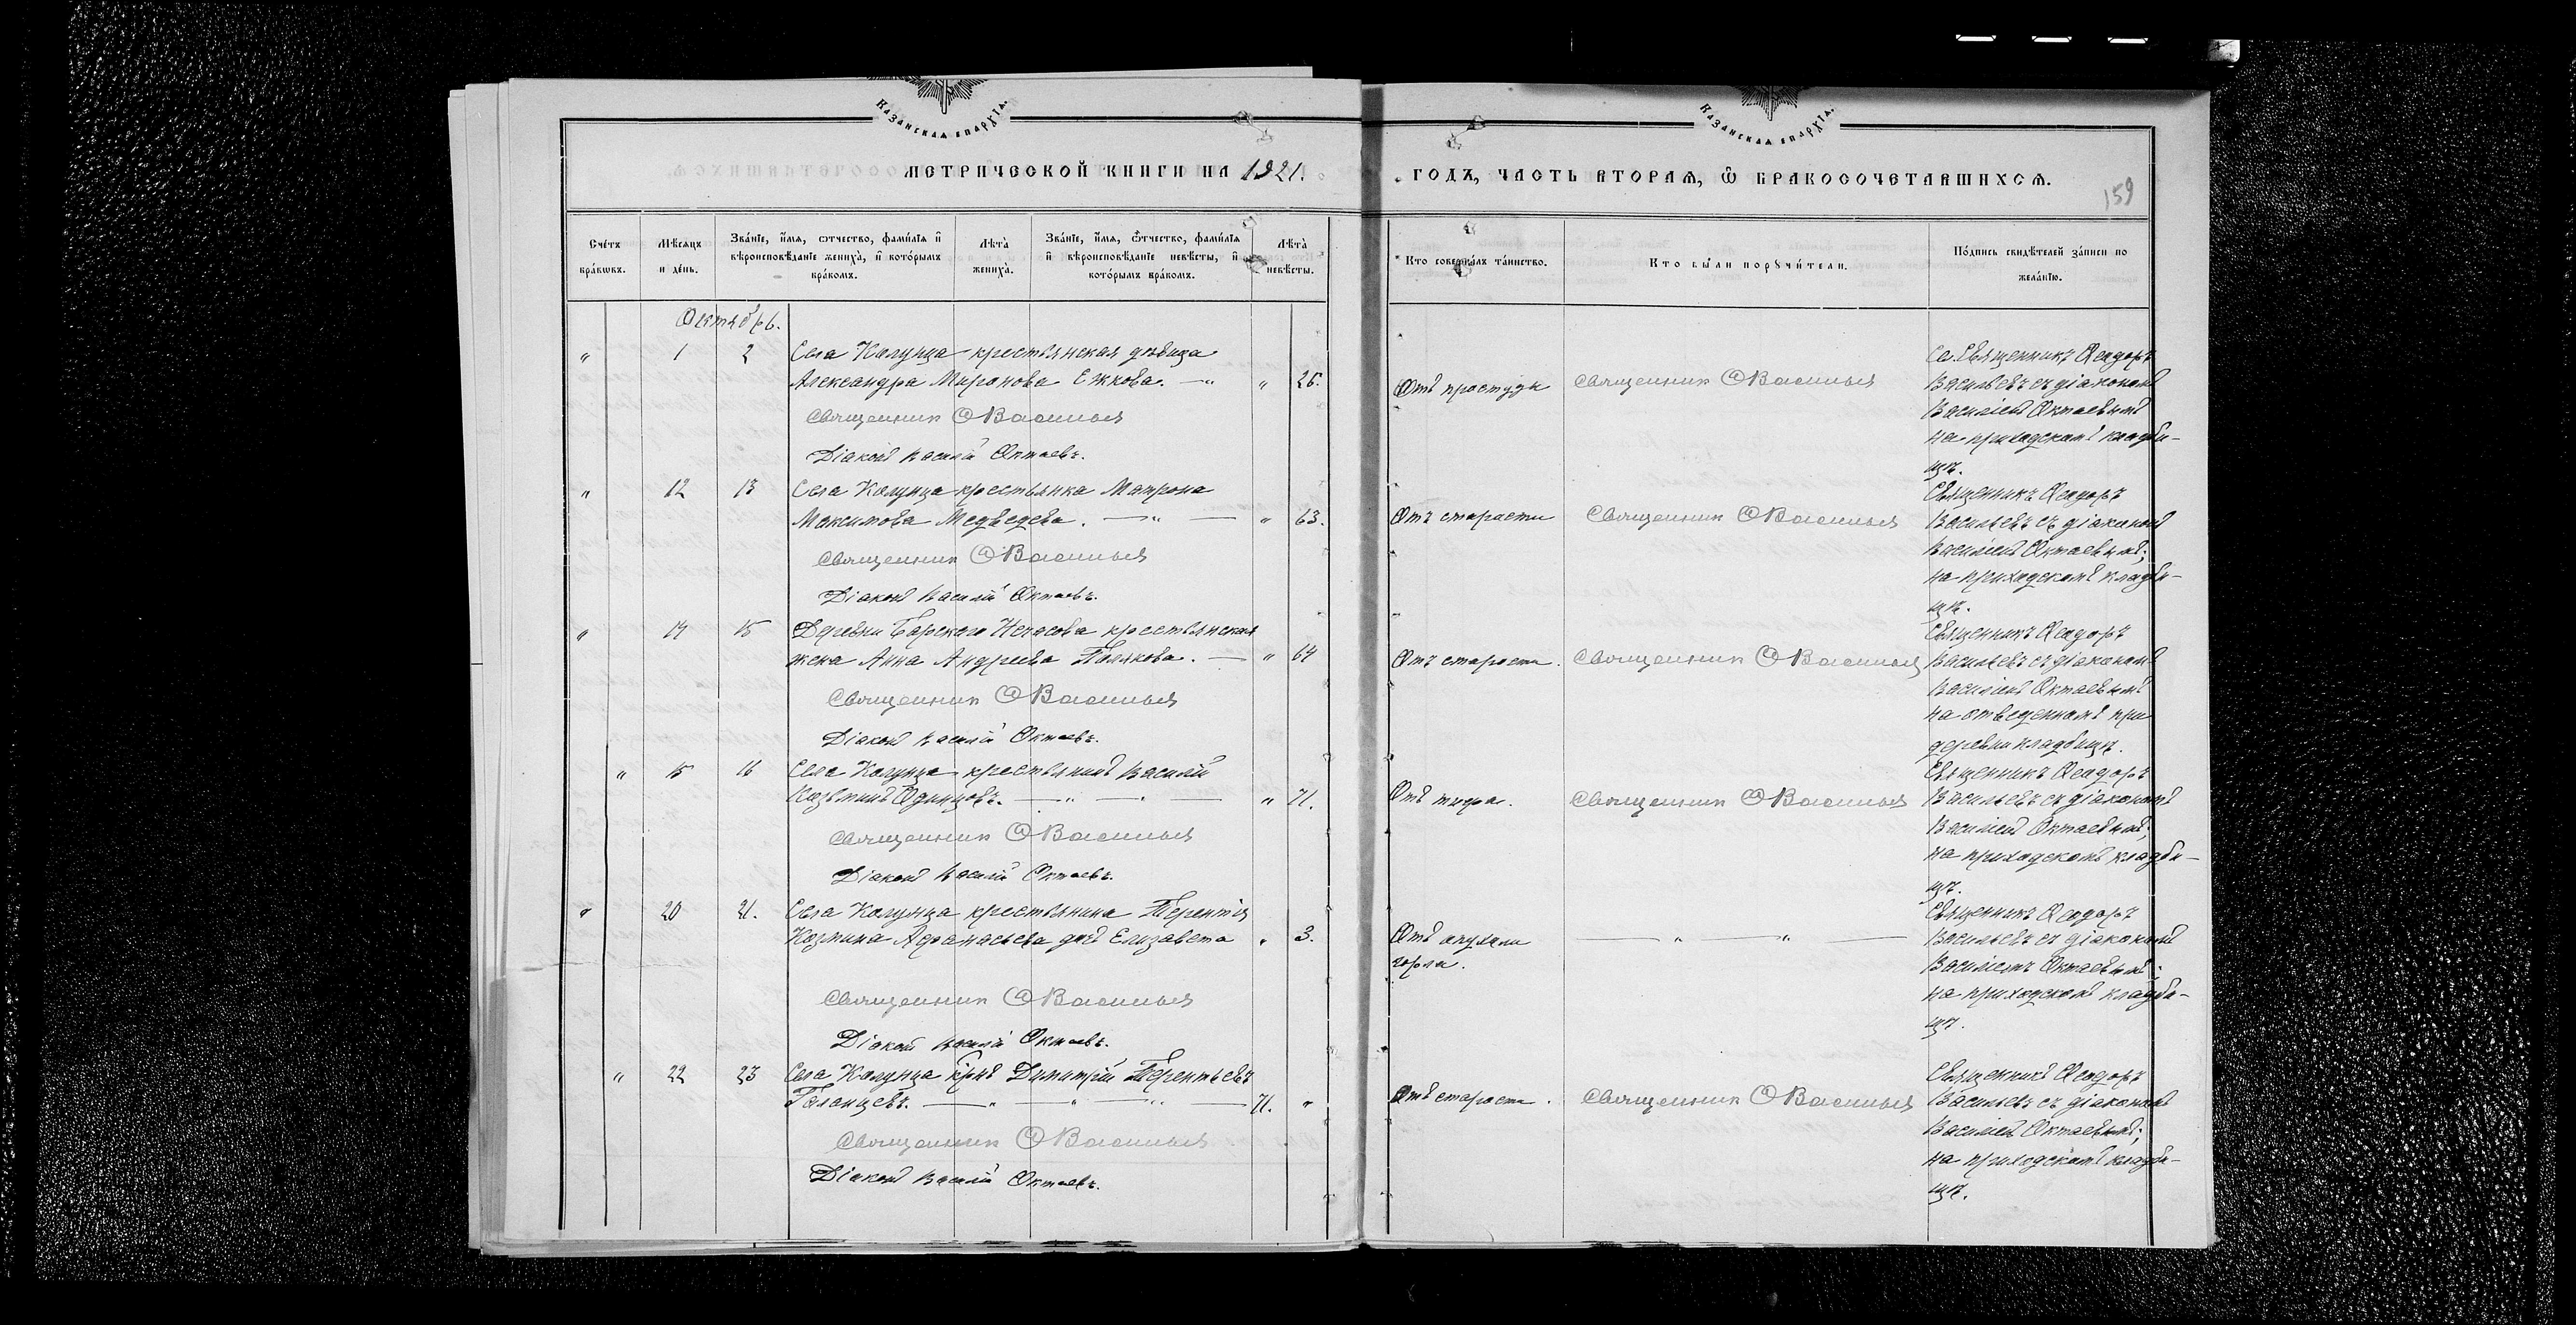 Казанская епархїа.
Казанская епархїа.
МЕТРИЧЕСКОЙ КНИГИ НА 1921.
ГОДЪ, ЧАСТЬ ВТОРАЯ, Ѿ БРАКОСОЧЕТАВШИХСЯ.
159
Счетъ браковъ.
Мѣсяцъ и день.
Званіе, имя, отчество, фамилія и вѣроисповѣданіе жениха, и которымъ бракомъ.
Лѣта жениха.
Званіе, имя, отчество, фамилія и вѣроисповѣданіе невѣсты, и которымъ бракомъ.
Лѣта невѣсты.
Кто совершалъ таинство.
Кто были поручители.
Подпись свидѣтелей записи по желанію.
Октябрь.
" 1 2 Села Колунца крестьянская дѣвица
Александра Миронова Ежкова. — " " 26.
Священник Ѳ Васильев
Діаконъ Василій Октаевъ.
Отъ простуды
Священник Ѳ Васильев
Священникъ Ѳеодоръ
Васильевъ съ діакономъ
Василіемъ Октаевымъ
на приходскомъ кладби-
щѣ.
" 12 13 Села Колунца крестьянка Матрона
Максимова Медведева. — " — " 63.
Священник Ѳ Васильев
Діаконъ Василій Октаевъ.
Отъ старости
Священник Ѳ Васильев
Священникъ Ѳеодоръ
Васильевъ съ діакономъ
Василіемъ Октаевымъ;
на приходскомъ кладби-
щѣ.
" 14 15 Деревни Барского Нечасова крестьянская
жена Анна Андреева Полякова. — " 64
Священник Ѳ Васильев
Діаконъ Василій Октаевъ.
Отъ старости.
Священник Ѳ Васильев
Священникъ Ѳеодоръ
Васильевъ съ діакономъ
Василіемъ Октаевымъ
на отведенномъ при
деревни кладбищѣ.
" 15 16 Села Колунца крестьянинъ Василій
Козьминъ Одинцовъ. — " — " — " 71.
Священник Ѳ Васильев
Діаконъ Василій Октаевъ.
Отъ тифа.
Священник Ѳ Васильев
Священникъ Ѳеодоръ
Васильевъ съ діакономъ
Василіемъ Октаевымъ;
на приходскомъ кладби-
щѣ.
" 20 21. Села Колунца крестьянина Терентія
Козмина Афанасьева дочь Елизавета " 3.
Священник Ѳ Васильев
Діаконъ Василій Октаевъ.
Отъ опухоли
горла.
— " — " —
Священникъ Ѳеодоръ
Васильевъ съ діакономъ
Василіемъ Октаевымъ;
на приходскомъ кладби-
щѣ.
" 22 23 Села Колунца кр-нъ Димитрій Терентьевъ
Галанцевъ. — " — " — " — 71. "
Священник Ѳ Васильев
Діаконъ Василій Октаевъ.
Отъ старости.
Священник Ѳ Васильев
Священникъ Ѳеодоръ
Васильевъ съ діакономъ
Василіемъ Октаевымъ;
на приходскомъ кладби-
щѣ.